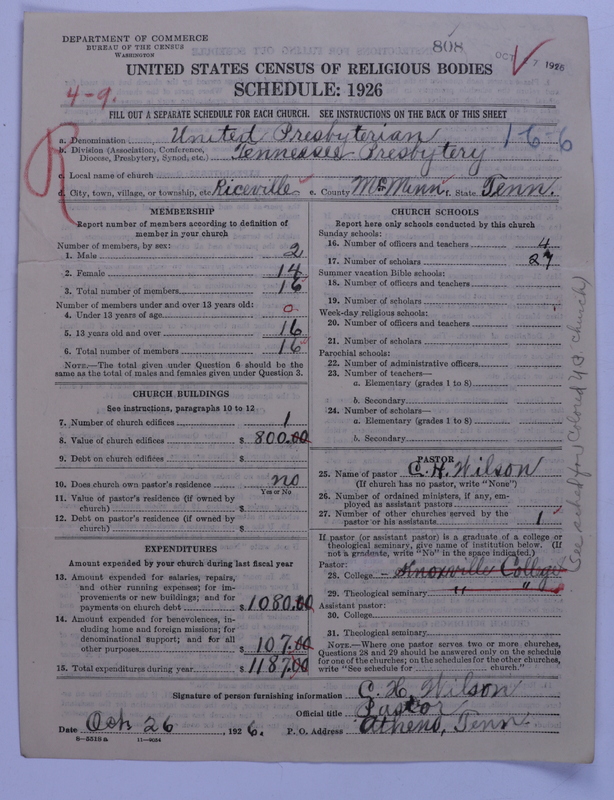 DEPARTMENT OF COMMERCE
BUREAU OF THE CENSUS
WASHINGTON
808
OCT 27 1926
UNITED STATES CENSUS OF RELIGIOUS BODIES
4-9.
SCHEDULE: 1926
FILL OUT A SEPARATE SCHEDULE FOR EACH CHURCH. SEE INSTRUCTIONS ON THE BACK OF THIS SHEET
R
a. Denomination United Presbyterian 16-6
b. Division (Association, Conference, Diocese, Presbytery, Synod, etc.) Tennessee Presbytery
c. Local name of church
d. City, town, village, or township, etc. Riceville e. County McMinn f. State Tenn.
MEMBERSHIP
Report number of members according to definition of
member in your church
Number of members, by sex:
1. Male 2
2. Female 14
3. Total number of members 16
Number of members under and over 13 years old:
4. Under 13 years of age 0
5. 13 years old and over 16
6. Total number of members 16
NOTE.—The total given under Question 6 should be
same as the total of males and females given under Question 3.
CHURCH BUILDINGS
See instructions, paragraphs 10 to 12
7. Number of church edifices 1
8. Value of church edifices $ 800.00
9. Debt on church edifices $
10. Does church own pastor's residence? no
Yes or No
11. Value of pastor's residence (if owned by
church) $
12. Debt on pastor's residence (if owned by
church) $
EXPENDITURES
Amount expended by your church during last fiscal year
13. Amount expended for salaries, repairs,
and other running expenses; for im-
provements or new buildings; and for
payments on church debt $ 1080.00
14. Amount expended for benevolences, in-
cluding home and foreign missions; for
denominational support; and for all
other purposes $ 107.00
15. Total expenditures during year $ 1187.00
CHURCH SCHOOLS
Report here only schools conducted by this church
Sunday schools:
16. Number of officers and teachers 4
17. Number of scholars 27
Summer vacation Bible schools:
18. Number of officers and teachers
19. Number of scholars
Week-day religious schools:
20. Number of officers and teachers
21. Number of scholars
Parochial schools:
22. Number of administrative officers
23. Number of teachers—
a. Elementary (grades 1 to 8)
b. Secondary
24. Number of scholars—
a. Elementary (grades 1 to 8)
b. Secondary
PASTOR
25. Name of pastor C. H. Wilson
(If church has no pastor, write "None")
26. Number of ordained ministers, if any, em-
ployed as assistant pastors
27. Number of other churches served by the
pastor or his assistants 1
If pastor (or assistant pastor) is a graduate of a college or
theological seminary, give name of institution below. (If
not a graduate, write "No" in the space indicated.)
Pastor:
28. College Knoxville College
29. Theological seminary " "
Assistant pastor:
30. College
31. Theological seminary
NOTE.—Where one pastor serves two or more churches,
Questions 28 and 29 should be answered only on the schedule
for one of the churches; on the schedules for the other churches,
write "See schedule for church."
Signature of person furnishing information C. H. Wilson
Official title Pastor
Date Oct 26, 1926. P. O. Address Athens, Tenn
8-5518 a 11-9024